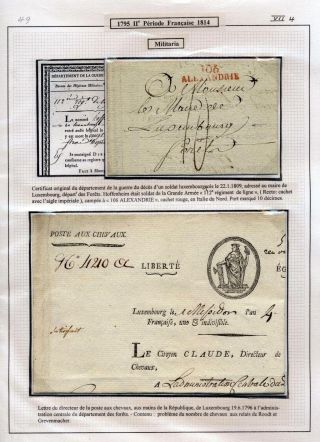 49
1795 IIᵉ Période Française 1814
VII 4
Militaria
DÉPARTEMENT DE LA GUERRE
Bureau des Hôpitaux Militaires
106
ALEXANDRIE
A Monsieur
Luxembourg
FAIT À
Certificat original du département de la guerre du décès d'un soldat luxembourgeois le 22.1.1809, adressé au maire de
Luxembourg, départ. des Forêts. Hoffenheim était soldat de la Grande Armée « 112ᵉ régiment de ligne », (Recto: cachet
avec l'aigle impériale), campée à « 106 ALEXANDRIE », cachet rouge, en Italie du Nord. Port marqué 10 décimes.
POSTE AUX CHEVAUX.
LIBERTÉ
ÉG
Luxembourg le, 1 Messidor l'an 4
Française, une & indivisible.
LE Citoyen CLAUDE, Directeur de
Chevaux,
A L'administration Centrale du
Lettre du directeur de la poste aux chevaux, aux mains de la République, de Luxembourg 19.6.1796 à l'adminis-
tration centrale du département des forêts - Contenu : problème du nombre de chevaux aux relais de Roodt et
Grevenmacher.